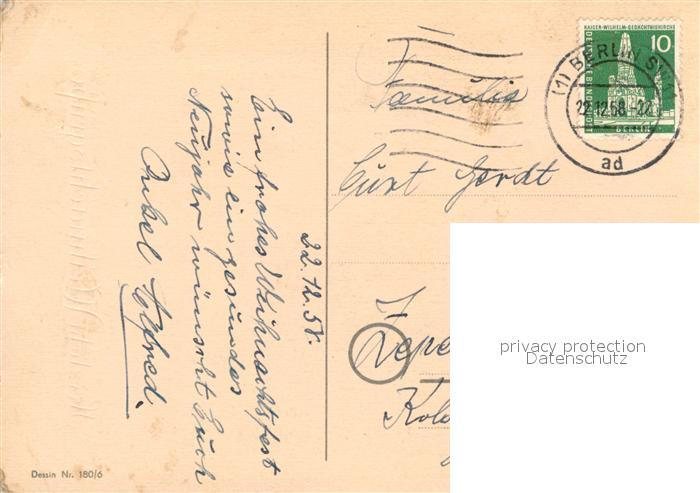 KAISER-WILHELM-GEDÄCHTNISKIRCHE
10
DEUTSCHE BUNDESPOST
BERLIN
(1) BERLIN SW
22.12.58.-22
ad
Familie
Curt Gerdt
22.12.58.
Ein frohes Weihnachtsfest
sowie ein gesundes
Neujahr wünscht Euch
Onkel Alfred.
Zepe
Kolo
privacy protection
Datenschutz
Dessin Nr. 180/6